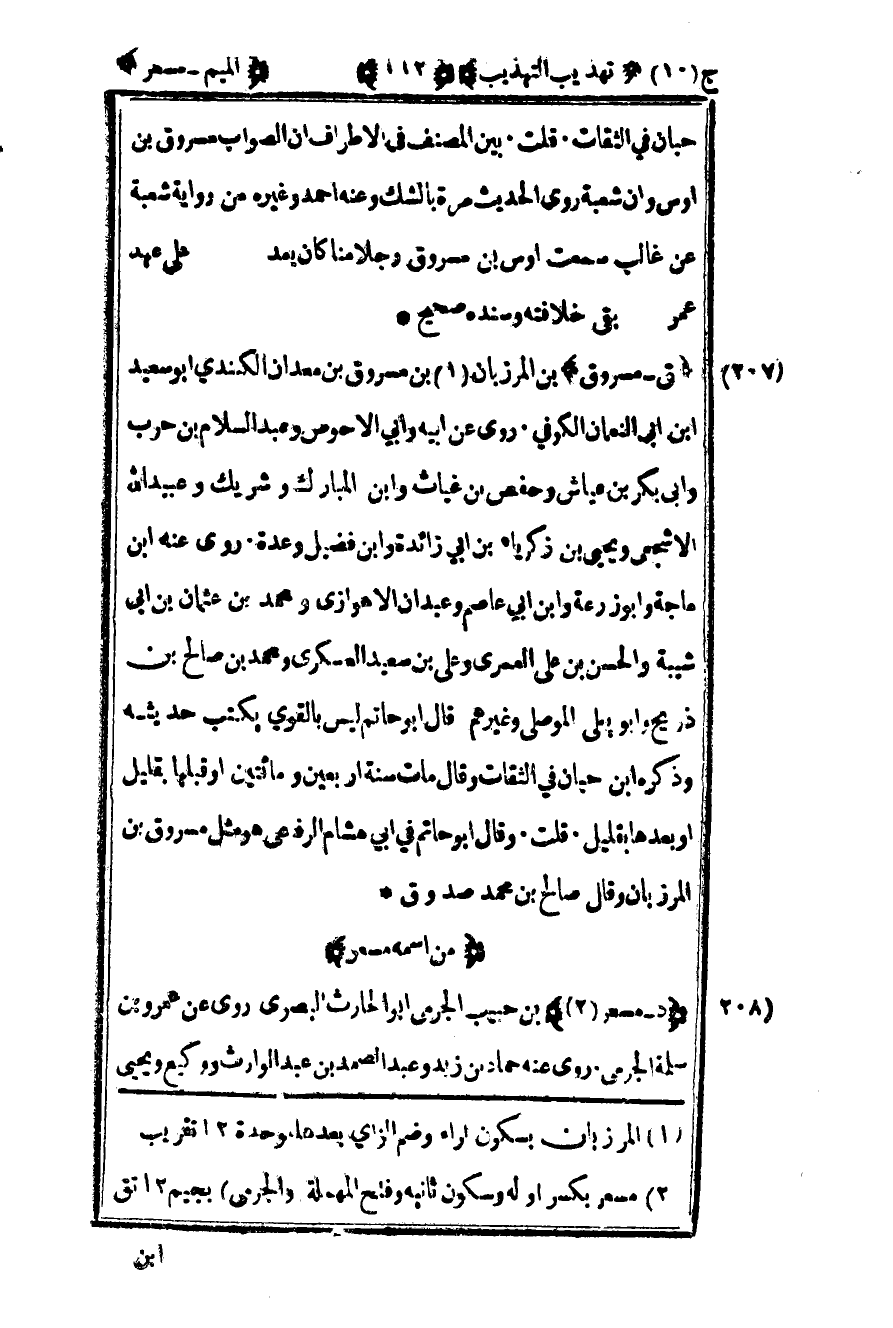 ج (١٠) ﴿ تهذيب التهذيب ﴾ ﴿ ١١٢ ﴾ ﴿ الميم ـ مسعر ﴾
حبان في الثقات ٠ قلت ٠ بين المصنف في الاطراف ان الصواب مسروق بن
اوس وان شعبة روى الحديث مرة بالشك وعنه احمد وغيره من رواية شعبة
عن غالب سمعت اوس بن مسروق رجلا منا كان يعد على عهد
عمر بقى خلافته وسنده صحيح *
(٢٠٧) ﴿ ق ـ مسروق ﴾ بن المرزبان (١) بن مسروق بن معدان الكندي ابو سعيد
ابن ابى النعمان الكوفي ٠ روى عن ابيه وابي الاحوص وعبد السلام بن حرب
وابى بكر بن عياش وحفص بن غياث وابن المبارك وشريك وعبيدالله
الاشجعى ويحيى بن زكرياء بن ابي زائدة وابن فضيل وعدة ٠ روى عنه ابن
ماجة وابو زرعة وابن ابي عاصم وعبدان الاهوازى و محمد بن عثمان بن ابى
شيبة والحسن بن على المعمرى وعلى بن سعيد العسكرى ومحمد بن صالح بن
ذريح وابو يعلى الموصلى وغيرهم قال ابو حاتم ليس بالقوي يكتب حديثه
وذكره ابن حبان في الثقات وقال مات سنة اربعين و مائتين او قبلها بقليل
او بعدها بقليل ٠ قلت ٠ وقال ابو حاتم في ابي هشام الرفاعى هو مثل مسروق بن
المرزبان وقال صالح بن محمد صدوق *
﴿ من اسمه مسعر ﴾
(٢٠٨ ﴿ د ـ مسعر (٢) ﴾ بن حبيب الجرمى ابو الحارث البصرى روى عن عمرو بن
سلمة الجرمى ٠ روى عنه حماد بن زيد وعبد الصمد بن عبد الوارث ووكيع ويحيى
(١) المرزبان بسكون الراء وضم الزاي بعدها موحدة ١٢ تقريب
٢) مسعر بكسر اوله وسكون ثانيه وفتح المهملة والجرمى) بجيم ١٢ تق
ابن